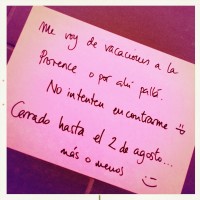 Me voy de vacaciones a la
Provence o por ahí pallá.
No intenten encontrarme :)
Cerrado hasta el 2 de agosto...
más o menos
:)